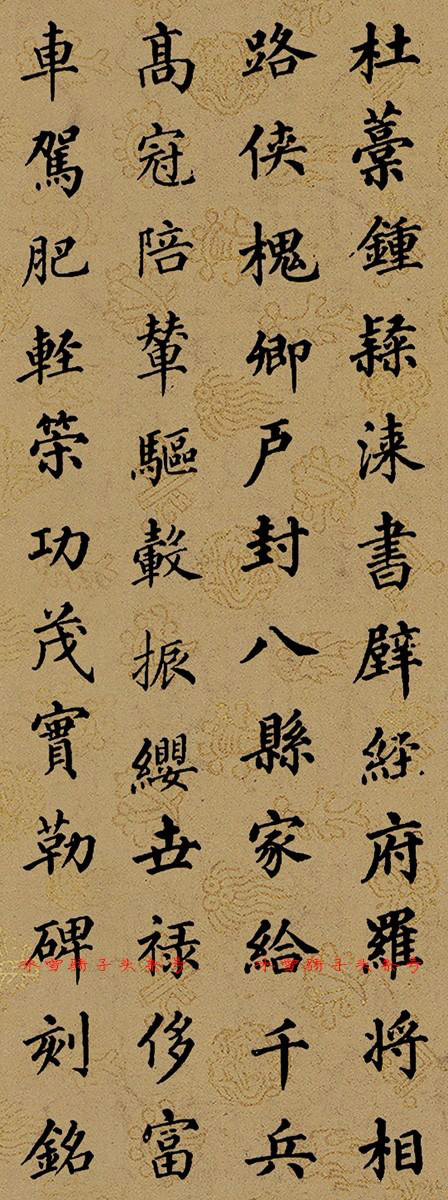 杜藁鍾隸漆書壁經府羅將相
路侠槐卿戶封八縣家給千兵
髙冠陪輦驅轂振纓世禄侈富
車駕肥軽策功茂實勒碑刻銘